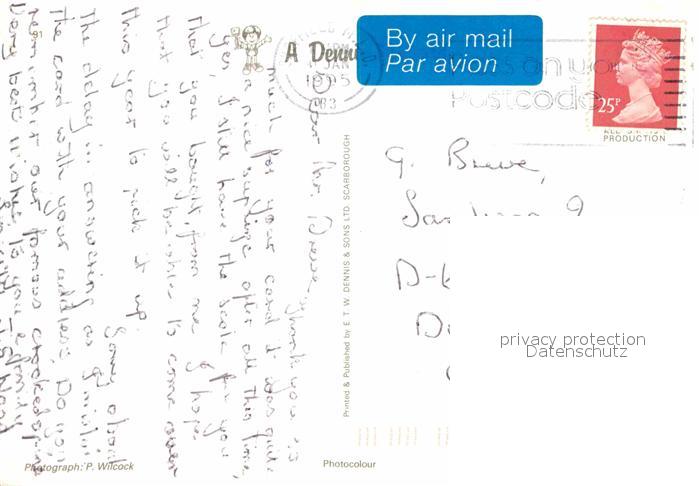 91
A Denni
By air mail
Par avion
JAN
1995
Postcode
25P
PRODUCTION
G. Brewe,
D-
Dear Mr Brewe, thank you so
much for your card. It was quite
a nice surprise after all this time.
Yes, I still have the scale for you
that you bought from me & hope
that you will be able to come over
this year to pick it up. Sorry about
the delay in answering as I mislaid
the card with your address. Do you
remember our famous crookedspire
Very best wishes to you & family
Printed & Published by E T W DENNIS & SONS LTD SCARBOROUGH
Photograph: P. Wilcock
Photocolour
privacy protection
Datenschutz